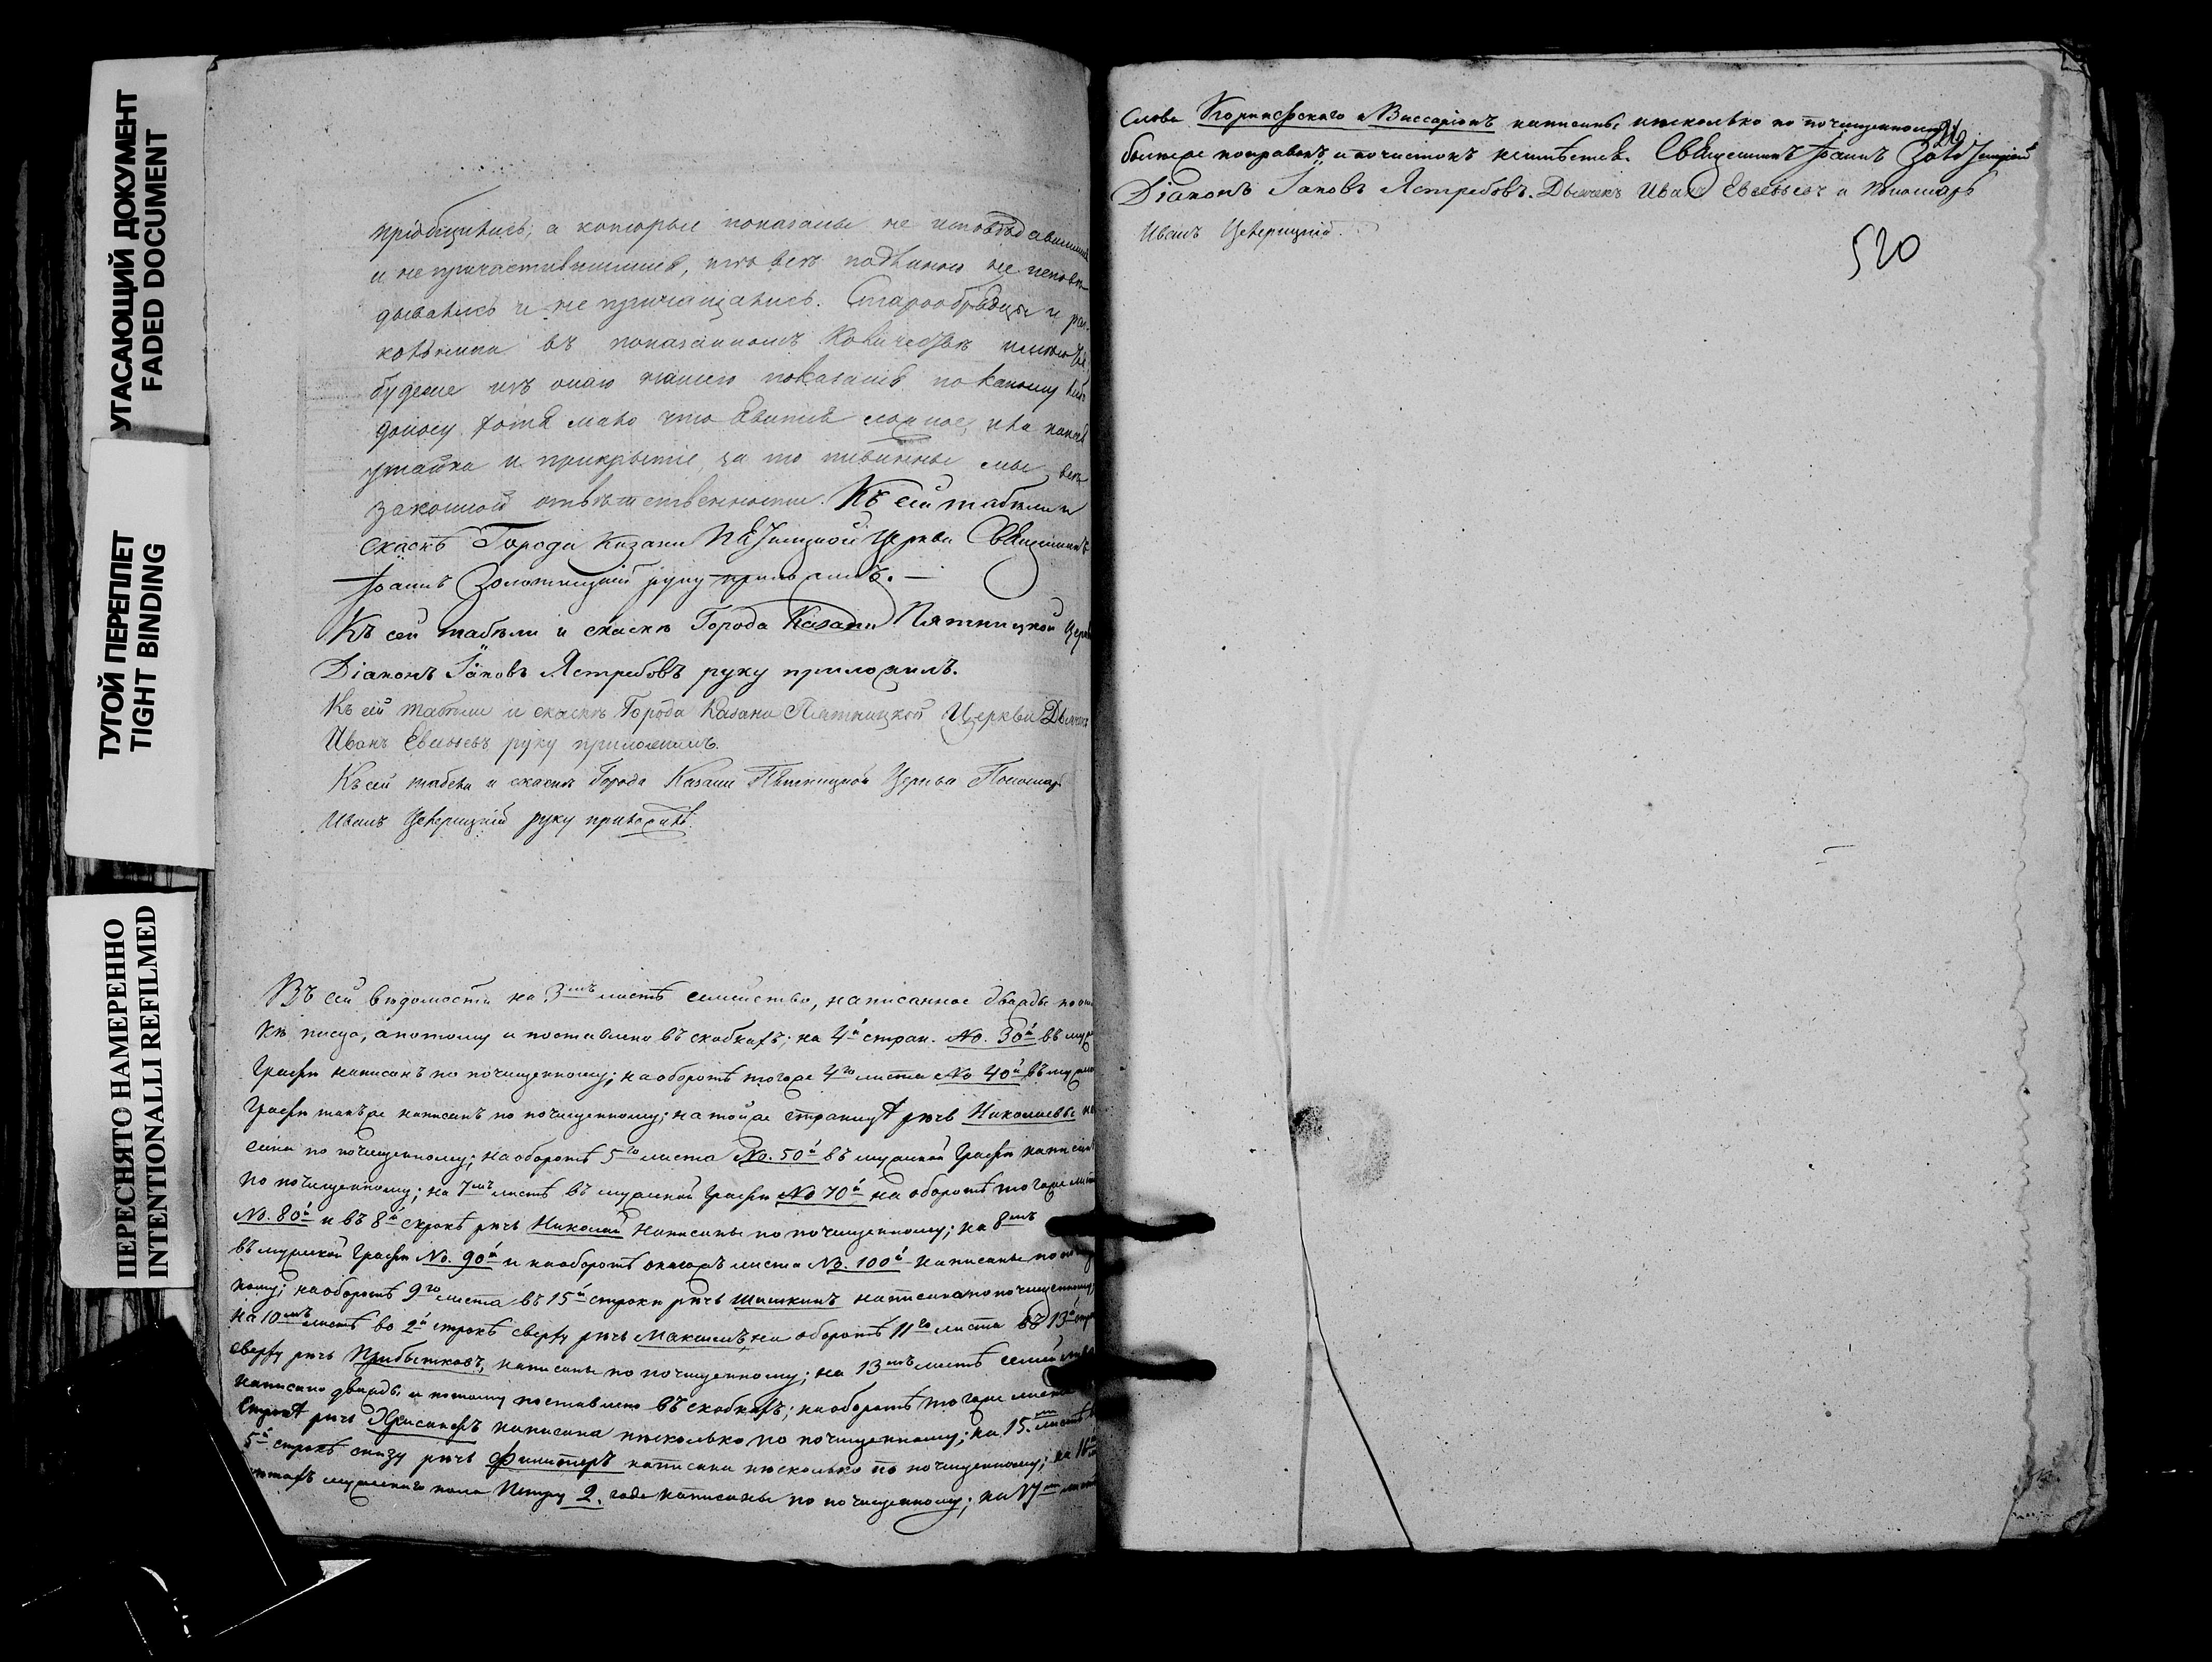 УГАСАЮЩИЙ ДОКУМЕНТ
FADED DOCUMENT
ТУГОЙ ПЕРЕПЛЕТ
TIGHT BINDING
ПЕРЕСНЯТО НАМЕРЕННО
INTENTIONALLI REFILMED
пріобщились; а которые показаны не исповѣдавшимися
и не причастившимися, тѣ всѣ подлинно не исповѣ-
дывались и не причащались. Старообрядцы и рас-
кольники въ показанномъ количествѣ
будеже изъ онаго нашего показанія по какому либо
доносу хотя мало что явится ложное, или какая
утайка и прикрытіе, за то повинны мы всѣ
законной отвѣтственности. Къ сей табели и
скаскѣ Города Казани Пятницкой Церкви Священникъ
Іоаннъ Золотницкій руку приложилъ.
Къ сей табели и скаскѣ Города Казани Пятницкой Церкви
Діаконъ Іаковъ Ястребовъ руку приложилъ.
Къ сей табели и скаскѣ Города Казани Пятницкой Церкви Дьячекъ
Иванъ Евсевьевъ руку приложилъ.
Къ сей табели и скаскѣ Города Казани Пятницкой Церкви Пономарь
Иванъ руку приложилъ.
Въ сей вѣдомости на 3мъ листѣ семейство, написанное дважды по
кѣ писца, а потому и поставлено въ скобкахъ; на 4й стран. No. 30й въ муж
графѣ написанъ по почищенному; на оборотѣ тогоже 4го листа No 40й въ мужской
графѣ также написанъ по почищенному; на тойже страницѣ рѣчь Николаевъ на
сана по почищенному; на оборотѣ 5го листа No. 50й въ мужской графѣ написанъ
по почищенному; на 7мъ листѣ въ мужской графѣ No 70й на оборотѣ тогоже листа
No. 80й и въ 8й строкѣ рѣчь Николай написаны по почищенному; на 8мъ
въ мужской графѣ No. 90й и на оборотѣ онагожъ листа No. 100й написаны по почищен
ному; на оборотѣ 9го листа въ 15й строкѣ рѣчь Шишкинъ написана по почищенному;
на 10мъ листѣ во 2й строкѣ сверху рѣчь Максимъ, на оборотѣ 11го листа въ 13й строкѣ
сверху рѣчь Прибытковъ, написаны по почищенному; на 13мъ листѣ семейство
написано дважды и потому поставлено въ скобкахъ; на оборотѣ тогоже листа
строкѣ рѣчь Хрисанфъ написана нѣсколько по почищенному; на 15мъ листѣ въ
5й строкѣ снизу рѣчь написана нѣсколько по почищенному; на 16мъ
мужескаго пола Петру 2. года написаны по почищенному; на 17мъ листѣ
Слова Коринфскаго и Виссаріонъ написаны нѣсколько по почищенному
болѣе поправокъ и почистокъ неимѣется. Священникъ Іоаннъ Золотницкій
Діаконъ Іаковъ Ястребовъ. Дьячекъ Иванъ Евсевьевъ и Пономарь
Иванъ
520